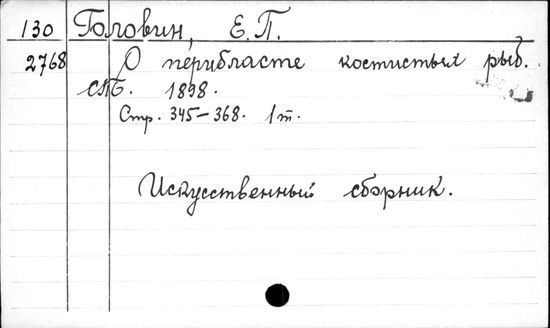 130 Головин, Е.П.
2768 О перибласте костистых рыб.
СПБ. 1898.
Стр. 345-368. 1 т.
Искусственный сборник.